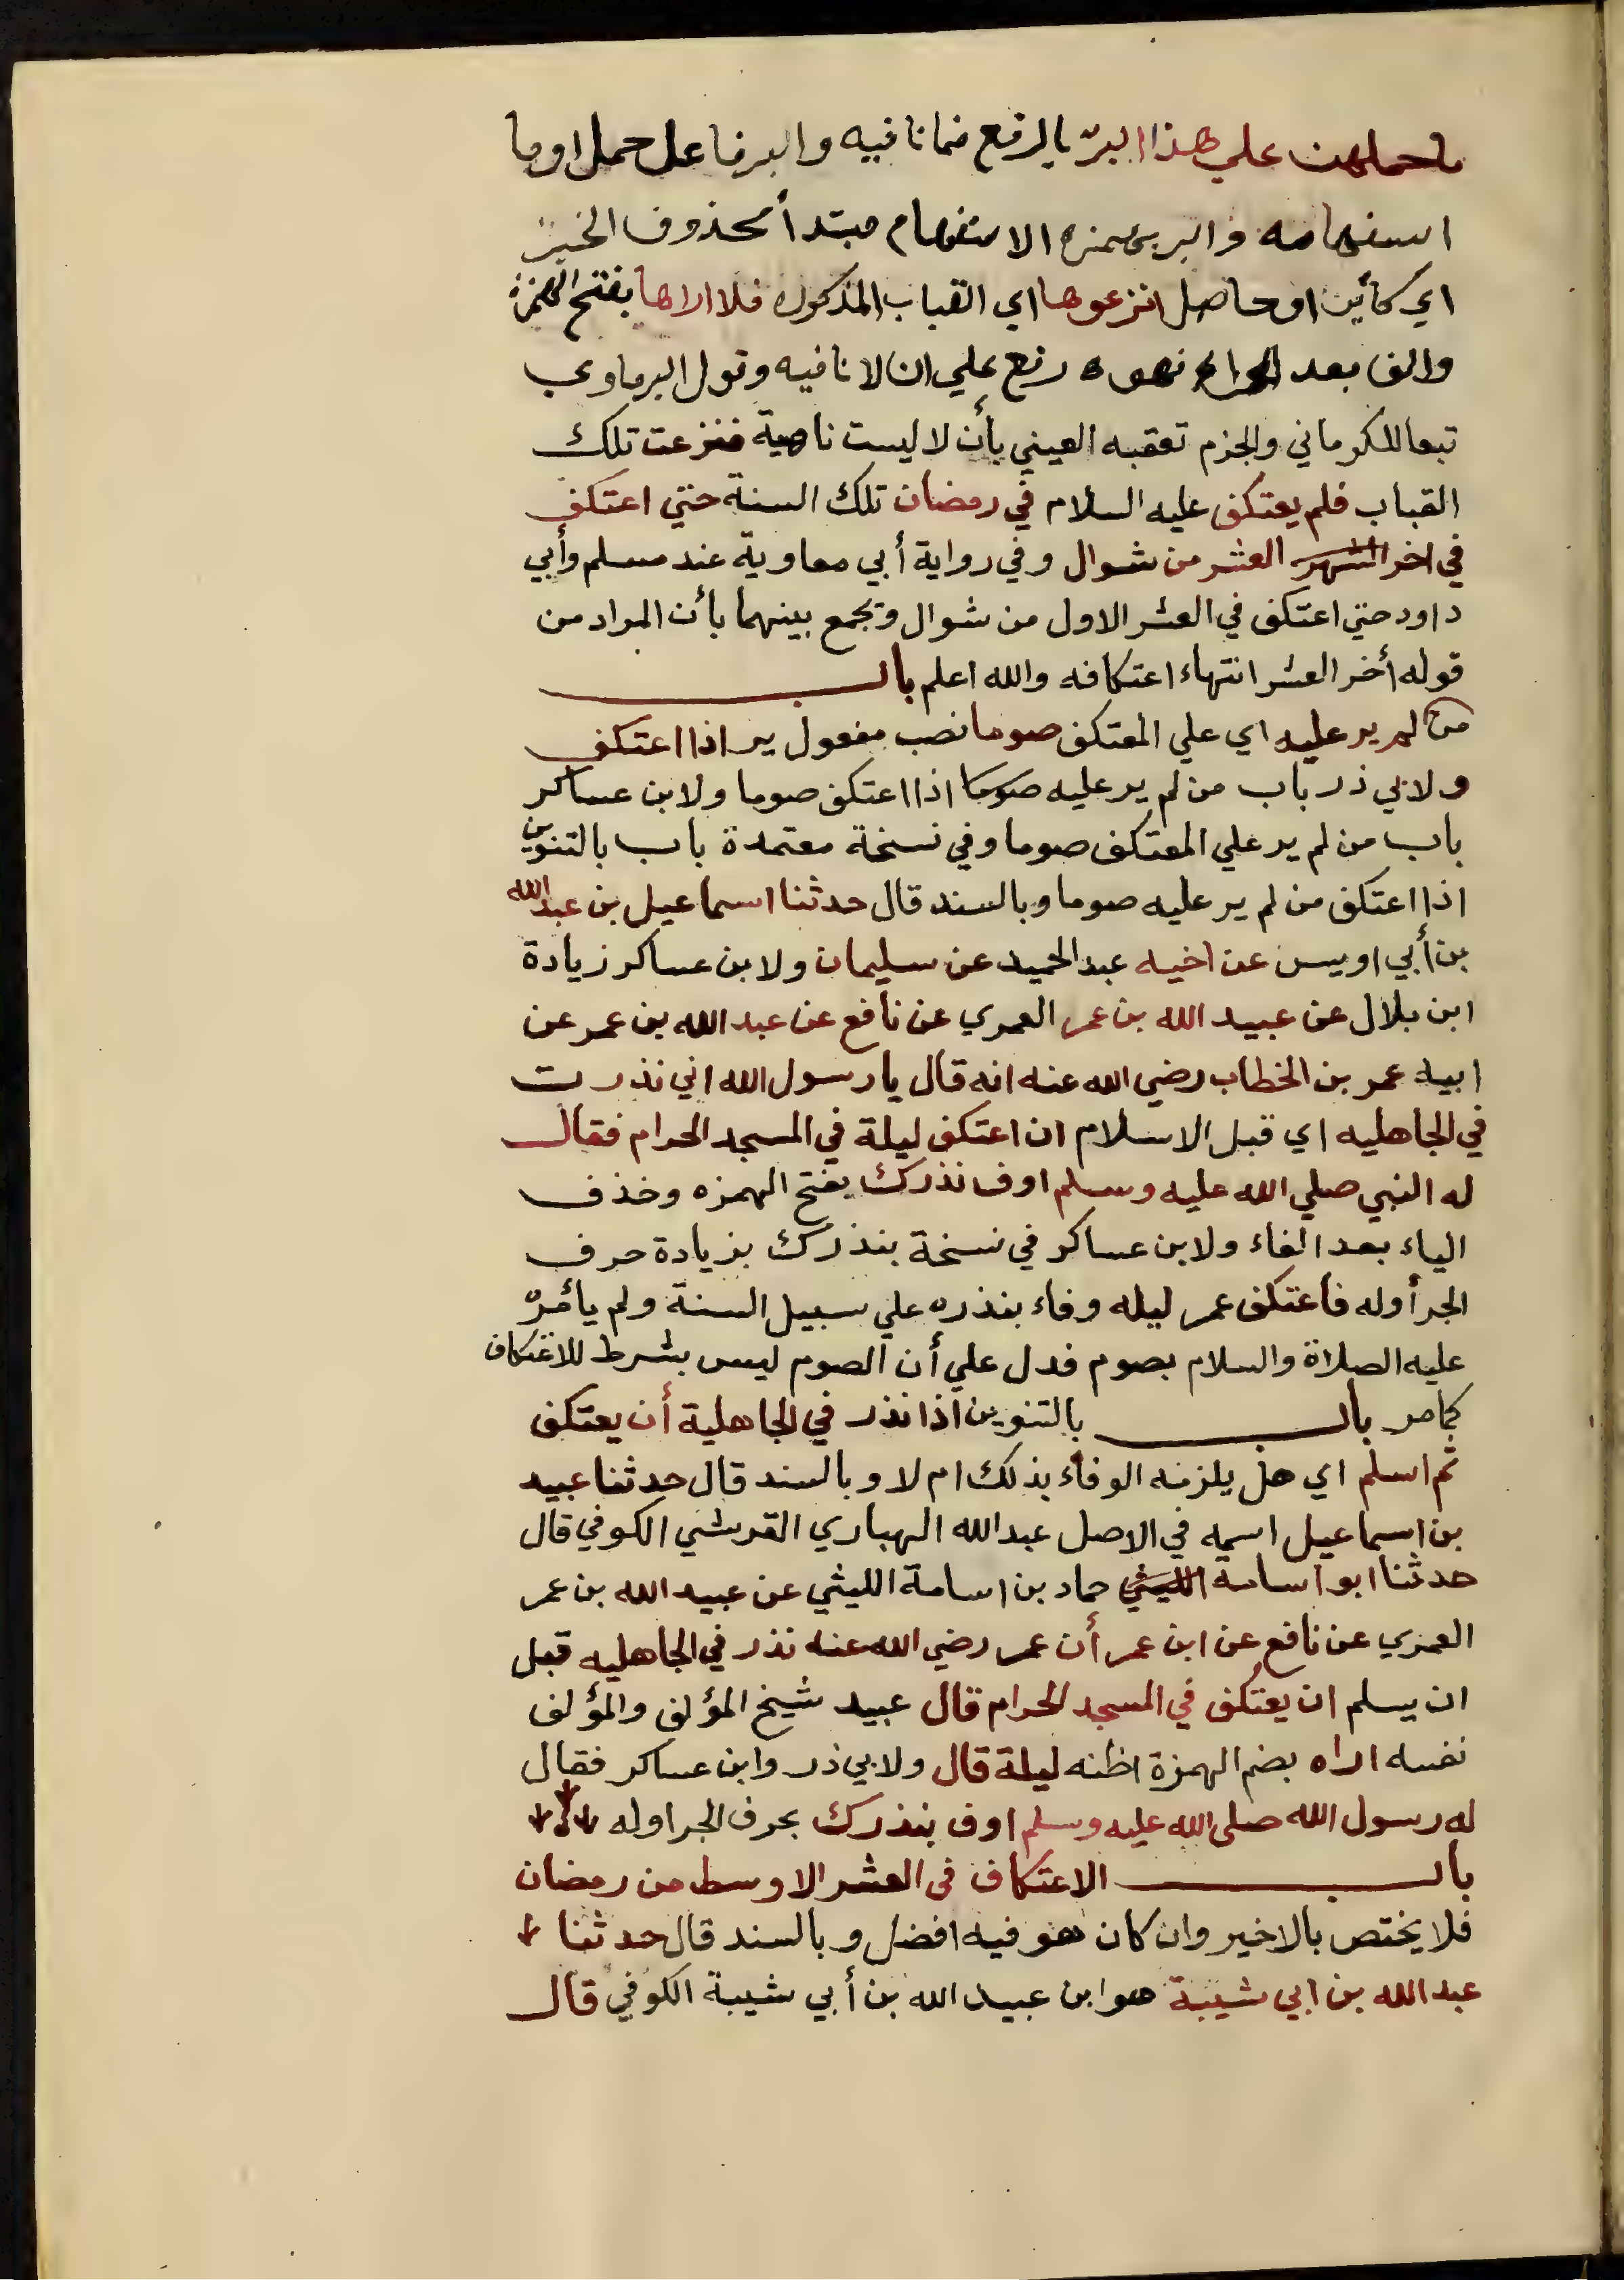 ما حملهن علي هذا البرّ بالرفع فما نافيه والبر فاعل حمل او ما
استفهاميه والبر بهمزه الاستفهام مبتدأ محذوف الخبر
اي كأين او حاصل انزعوها اي القباب المذكوره فلا اراها بفتح الهمزة
والف بعد الراء رفع علي ان لا نافيه وقول البرماوي
تبعا للكرماني والجزم تعقبه العيني بأن لا ليست ناهية فنزعت تلك
القباب فلم يعتكف عليه السلام في رمضان تلك السنة حتي اعتكف
في اخر الشهر العشر من شوال وفي رواية أبي معاوية عند مسلم وأبي
داود حتي اعتكف في العشر الاول من شوال وتجمع بينهما بأن المراد من
قوله أخر العشر انتهاء اعتكافه والله اعلم باب
من لم ير عليه اي علي المعتكف صوما نصب مفعول ير اذا اعتكف
ولابي ذر باب من لم ير عليه صوما اذا اعتكف صوما ولابن عساكر
باب من لم ير علي المعتكف صوما وفي نسخة معتمدة باب بالتنوين
اذا اعتكف من لم ير عليه صوما وبالسند قال حدثنا اسماعيل بن عبد الله
بن أبي اويس عن اخيه عبد الحميد عن سليمان ولابن عساكر زيادة
ابن بلال عن عبيد الله بن عمر العمري عن نافع عن عبد الله بن عمر عن
ابيه عمر بن الخطاب رضي الله عنه انه قال يا رسول الله اني نذرت
في الجاهليه اي قبل الاسلام ان اعتكف ليلة في المسجد الحرام فقال
له النبي صلي الله عليه وسلم اوف نذرك بفتح الهمزه وخذف
الياء بعد الفاء ولابن عساكر في نسخة بنذرك بزيادة حرف
الجر أوله فاعتكف عمر ليله وفاء بنذره علي سبيل السنة ولم يأمره
عليه الصلاة والسلام بصوم فدل علي أن الصوم ليس بشرط للاعتكاف
كما مر باب بالتنوين اذا نذر في الجاهلية أن يعتكف
ثم اسلم اي هل يلزمه الوفاء بذلك ام لا وبالسند قال حدثنا عبيد
بن اسماعيل اسمه في الاصل عبد الله الهباري القرشي الكوفي قال
حدثنا ابو اسامة الليثي حماد بن اسامة الليثي عن عبيد الله بن عمر
العمري عن نافع عن ابن عمر أن عمر رضي الله عنه نذر في الجاهليه قبل
ان يسلم ان يعتكف في المسجد الحرام قال عبيد شيخ المؤلف والمؤلف
نفسه اراه بضم الهمزة اظنه ليلة قال ولابي ذر وابن عساكر فقال
له رسول الله صلى الله عليه وسلم اوف بنذرك بحرف الجر اوله
باب الاعتكاف في العشر الاوسط من رمضان
فلا يختص بالاخير وان كان هو فيه افضل وبالسند قال حدثنا
عبد الله بن ابي شيبة هو ابن عبيد الله بن أبي شيبة الكوفي قال